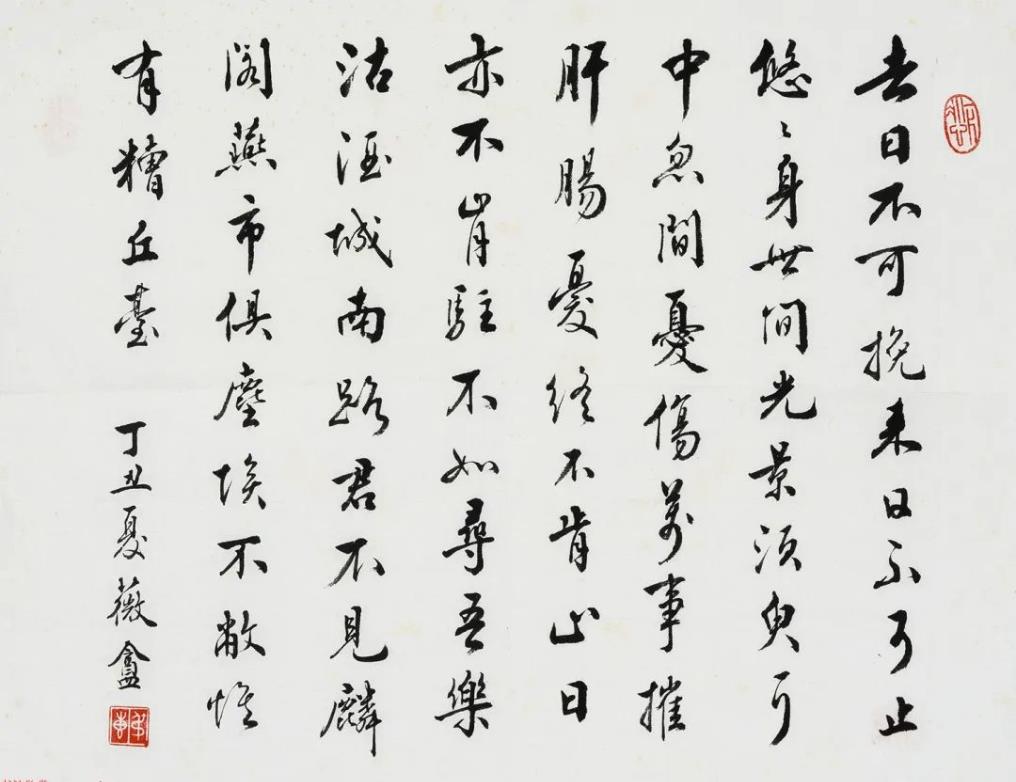 去日不可挽来日不可止
悠〻身世间光景須臾耳
中忽間憂傷萬事摧
肝腸憂終不肯止日
亦不肯駐不如尋吾樂
沽酒城南路君不見麟
阁燕市俱塵埃不敝惟
有糟丘臺 丁丑夏薇盦